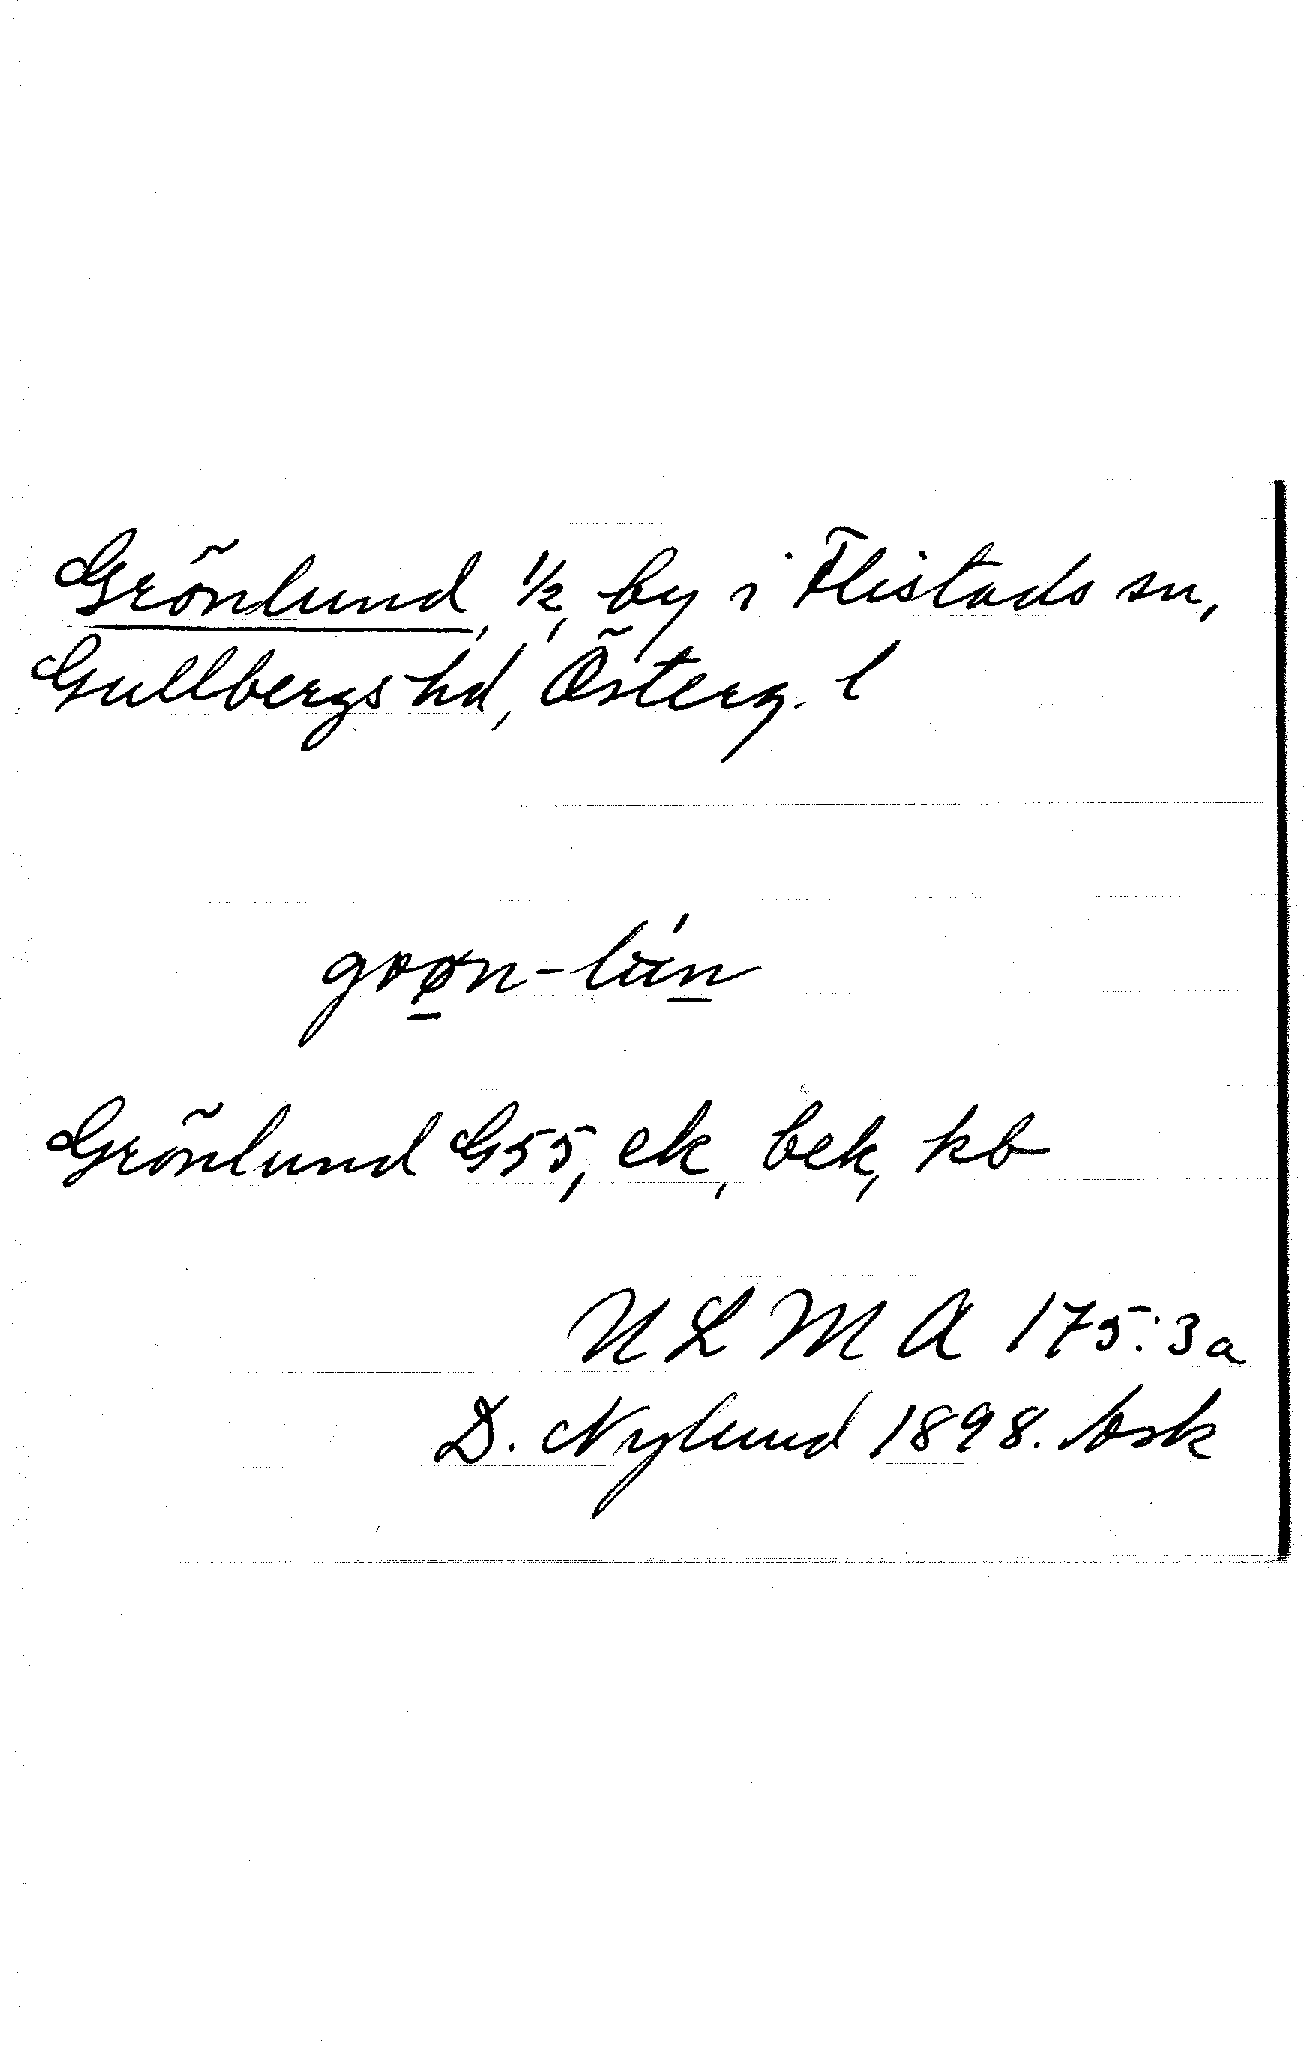 Grönlund, 1/2, by i Flistads sn,
Gullbergs hd, Österg. l
Grönlund G55, ek, bek, kb
ULMA 175:3a
D. Nylund 1898. Avsk